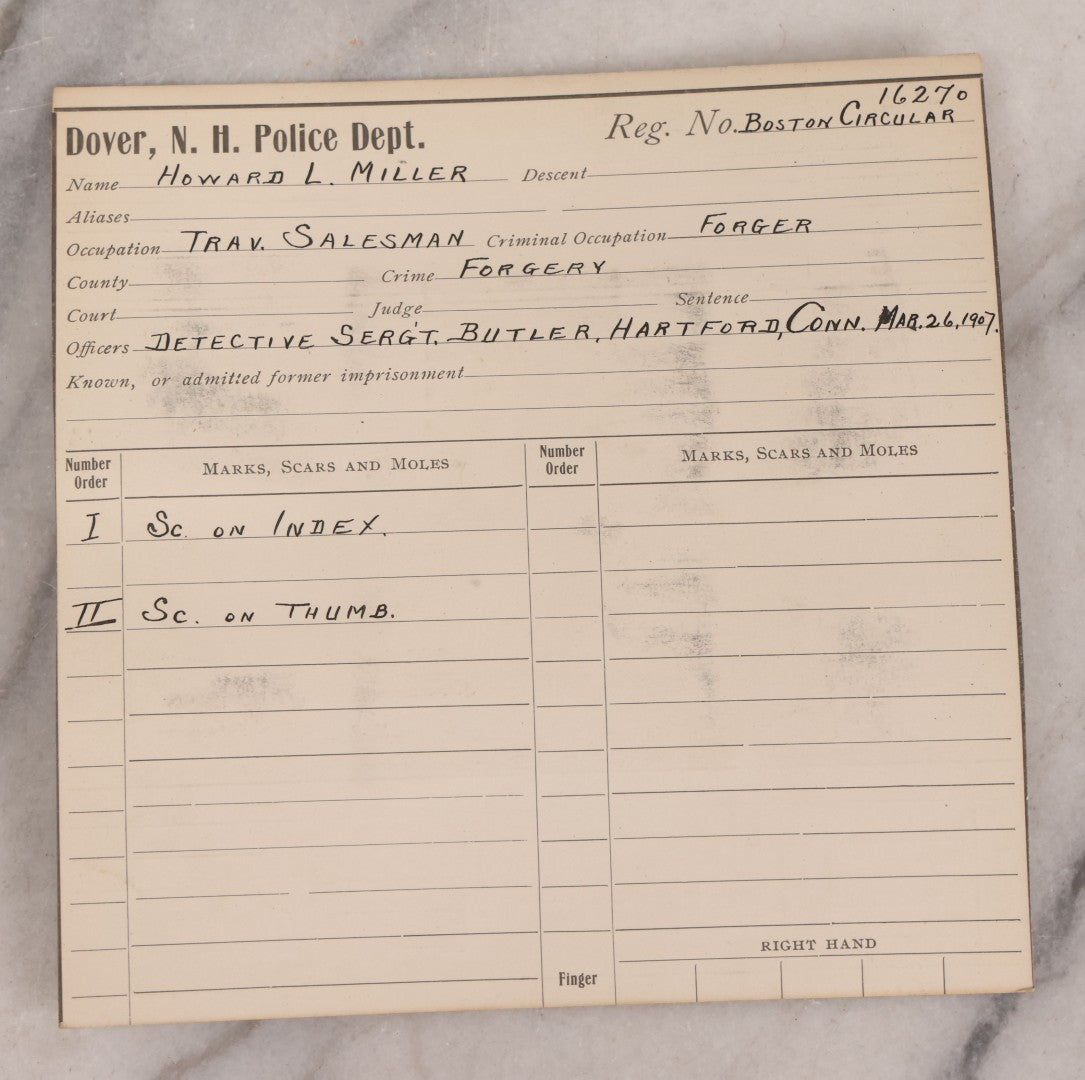 16270
Dover, N. H. Police Dept. Reg. No. BOSTON CIRCULAR
Name HOWARD L. MILLER Descent
Aliases
Occupation TRAV. SALESMAN Criminal Occupation FORGER
County Crime FORGERY
Court Judge Sentence
Officers DETECTIVE SERG'T. BUTLER, HARTFORD, CONN. MAR. 26, 1907.
Known, or admitted former imprisonment
Number Order MARKS, SCARS AND MOLES Number Order MARKS, SCARS AND MOLES
I SC. ON INDEX.
II SC. ON THUMB.
RIGHT HAND
Finger